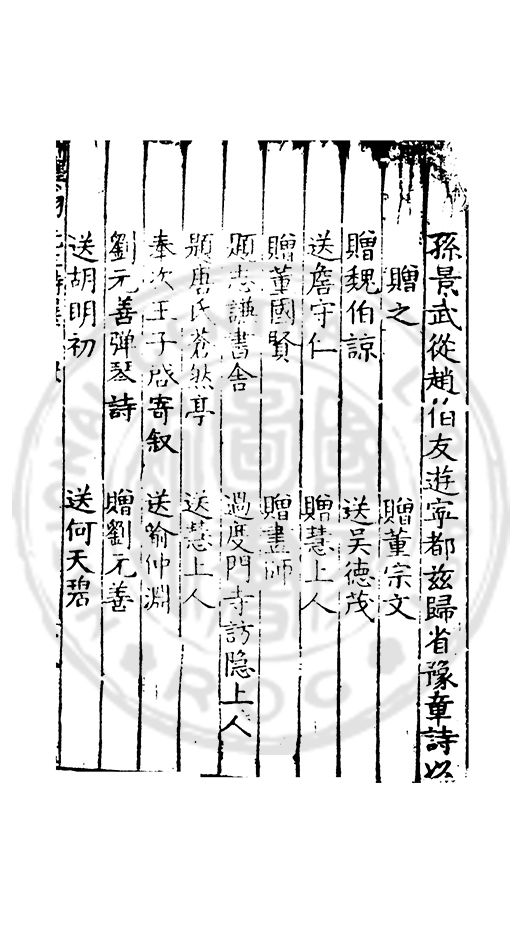 孫景武從趙伯友遊寧都兹歸省豫章詩以
贈之　贈董宗文
贈魏伯諒　送吴德茂
送詹守仁　贈慧上人
贈董國賢　贈畫師
題志謙書舎　過度門寺訪隐上人
題唐氏蒼然亭　送慧上人
奉次王子啓寄叙　送喻仲淵
劉元善彈琴詩　贈劉元善
送胡明初　送何天碧